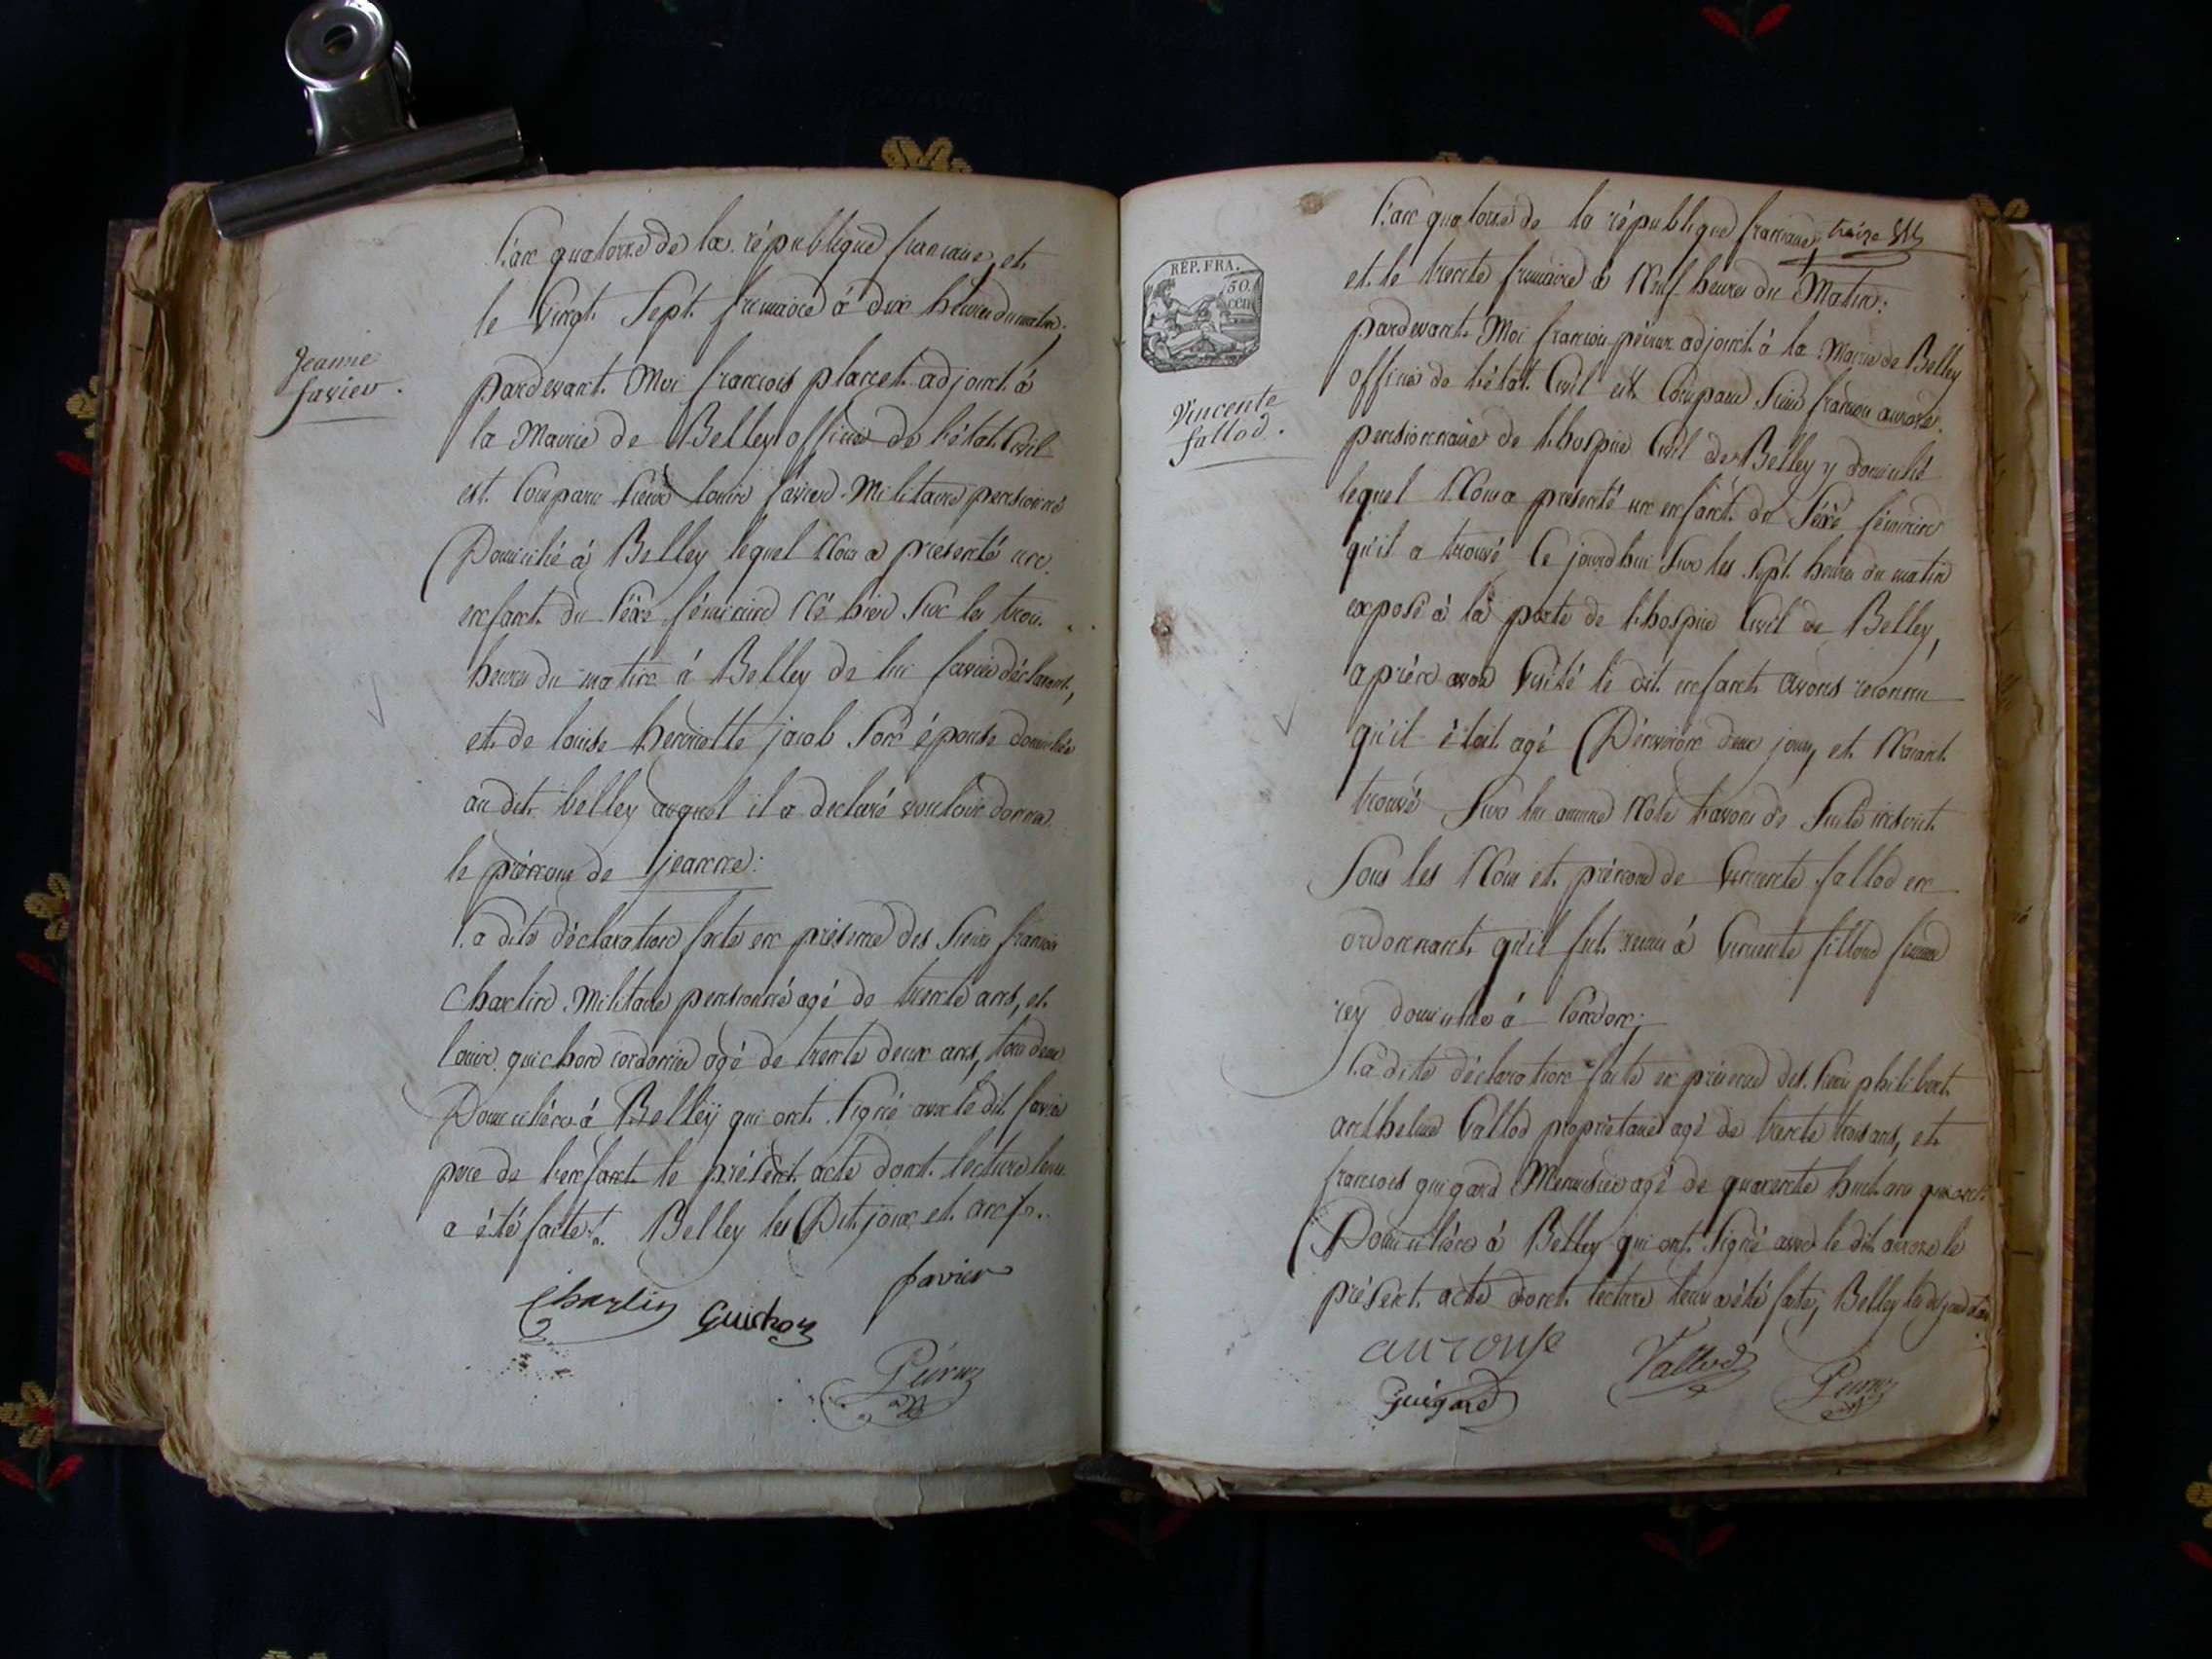 L'an quatorze de la république francaise, et
le Vingt Sept frimaire à dix heures du matin:
Jeanne
favier.
pardevant Moi francois placet adjoint à
la Mairie de Belley officier de l'état Civil
est Comparu Sieur louis favier Militaire pensionné
Domicilié à Belley lequel Nous a présenté un
enfant du Séxe féminin Né hier Sur les trois
heures du matin à Belley de lui favier déclarant,
et de louise henriette jacob Son épouse domiciliée
au dit belley auquel il a declaré vouloir donner
le prénom de jeanne:
La dite déclaration faite en présence des Sieurs francois
Charlin Militaire pensionné agé de trente ans, et
louis guichon cordonnier agé de trente deux ans, tous deux
Domiciliés à Belley qui ont Signé avec le dit favier
pere de l'enfant le présent acte dont lecture leur
a été faite. Belley les Dit jour et an
Charlin Guichon favier
L'an quatorze de la république francaise, treize
et le trente frimaire à Neuf heures du Matin:
REP. FRA.
50.
cen
Vincente
fallod.
pardevant Moi francois adjoint à la Mairie de Belley
officier de l'état Civil est Comparu Sieur francois
pensionnaire de l'hospice Civil de Belley y domicilié
lequel Nous a presenté un enfant du Séxe féminin
qu'il a trouvé Ce jourd'hui Sur les Sept heures du matin
exposé à la porte de l'hospice Civil de Belley,
aprés avoir Visité le dit enfant avons reconnu
qu'il étoit agé D'environ deux jours, et N'aiant
trouvé Sur lui aucune Note l'avons de Suite inscrit
Sous les Nom et prénom de Vincente fallod en
ordonnant qu'il fut remis à Vincente fillod femme
rey domiciliée à
La dite déclaration faite en présence des Sieurs philibert
anthelme Vallod propriétaire agé de trente trois ans, et
francois guigard Menuisier agé de quarente huit ans
Domiciliés à Belley qui ont Signé avec le dit le
présent acte dont lecture leur a été faite, Belley les dit jour et an
aurouse Vallod
Guigard